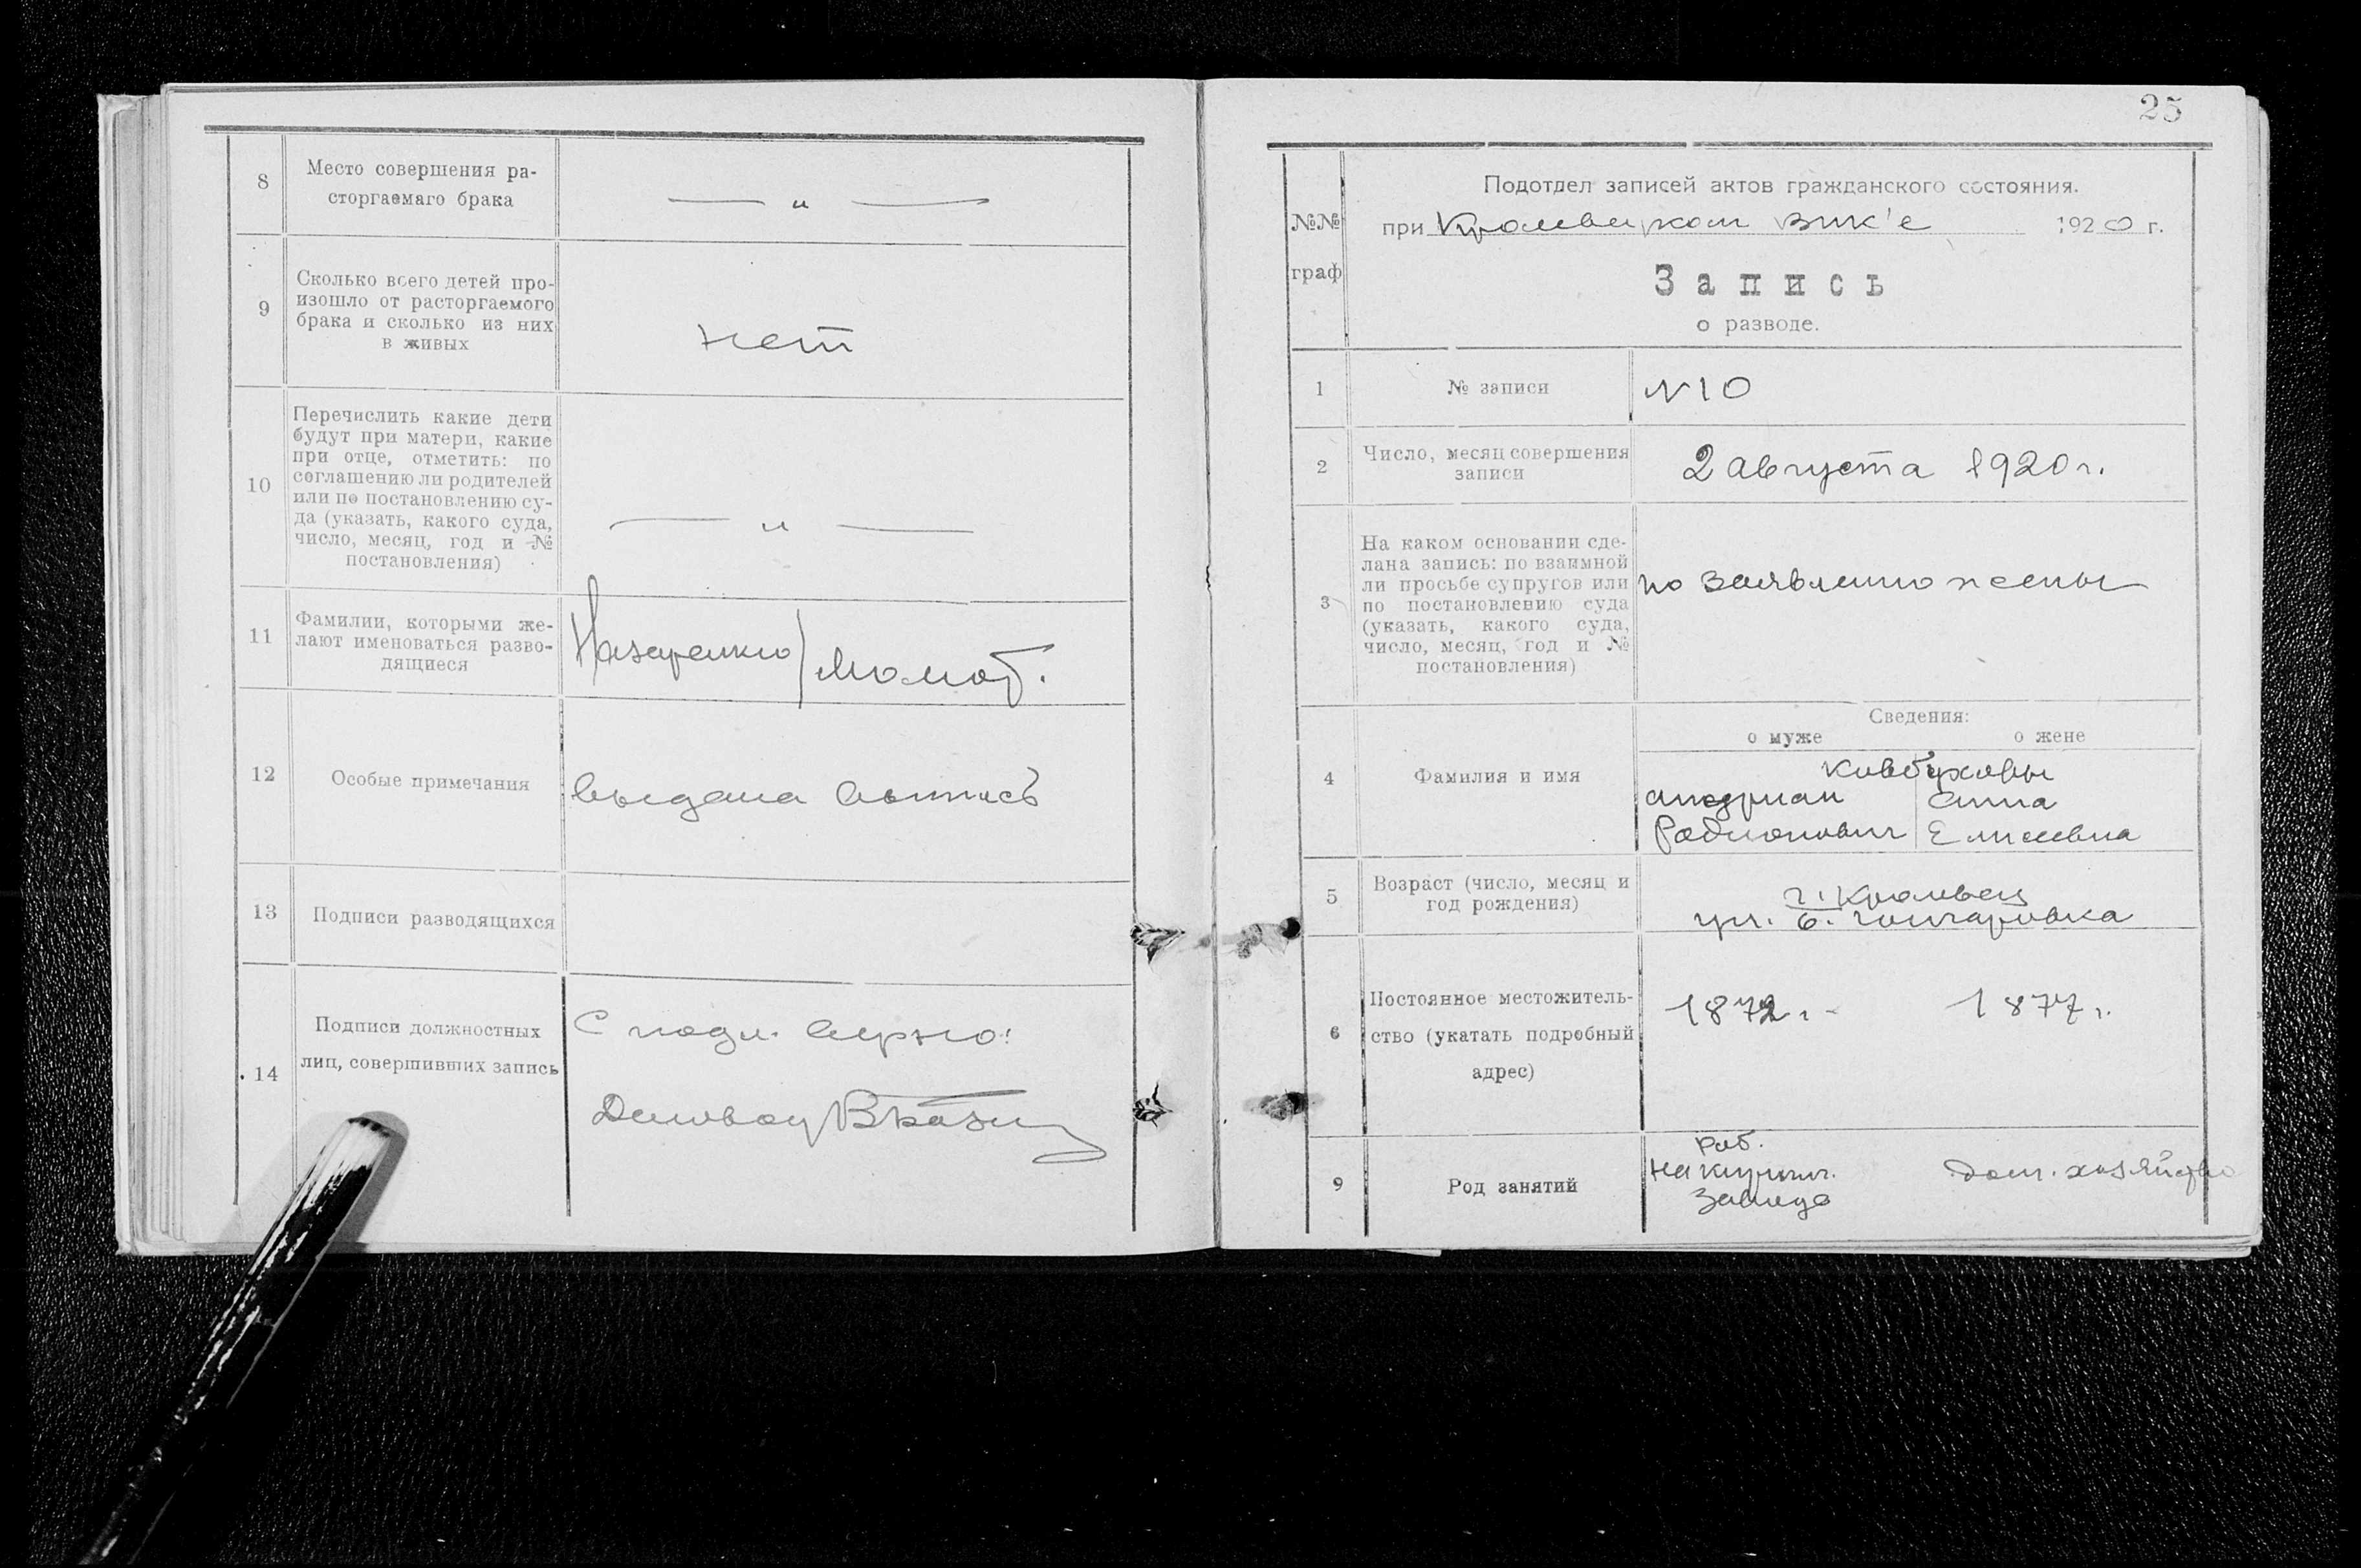 8
Место совершения ра-
сторгаемаго брака
— „ —
9
Сколько всего детей про-
изошло от расторгаемого
брака и сколько из них
в живых
нет
10
Перечислить какие дети
будут при матери, какие
при отце, отметить: по
соглашению ли родителей
или по постановлению су-
да (указать, какого суда,
число, месяц, год и №
постановления)
— „ —
11
Фамилии, которыми же-
лают именоваться разво-
дящиеся
Назаренко
12
Особые примечания
выдана выпись
13
Подписи разводящихся
14
Подписи должностных
лиц, совершивших запись
С подл. верно:
Деловод
25
№№
граф
Подотдел записей актов гражданского состояния.
при Кролевецком Вик'е 1920 г.
Запись
о разводе.
1
№ записи
№10
2
Число, месяц совершения
записи
2 августа 1920 г.
3
На каком основании сде-
лана запись: по взаимной
ли просьбе супругов или
по постановлению суда
(указать, какого суда,
число, месяц, год и №
постановления)
по заявлению жены
Сведения:
о муже
о жене
4
Фамилия и имя
Андриан
Родионович
Анна
Елисеевна
5
Возраст (число, месяц и
год рождения)
г. Кролевец
ул. Б. Гончаровка
6
Постоянное местожитель-
ство (укатать подробный
адрес)
1872 г.
1877 г.
9
Род занятий
раб.
на кирпич.
заводе
дом. хозяйство